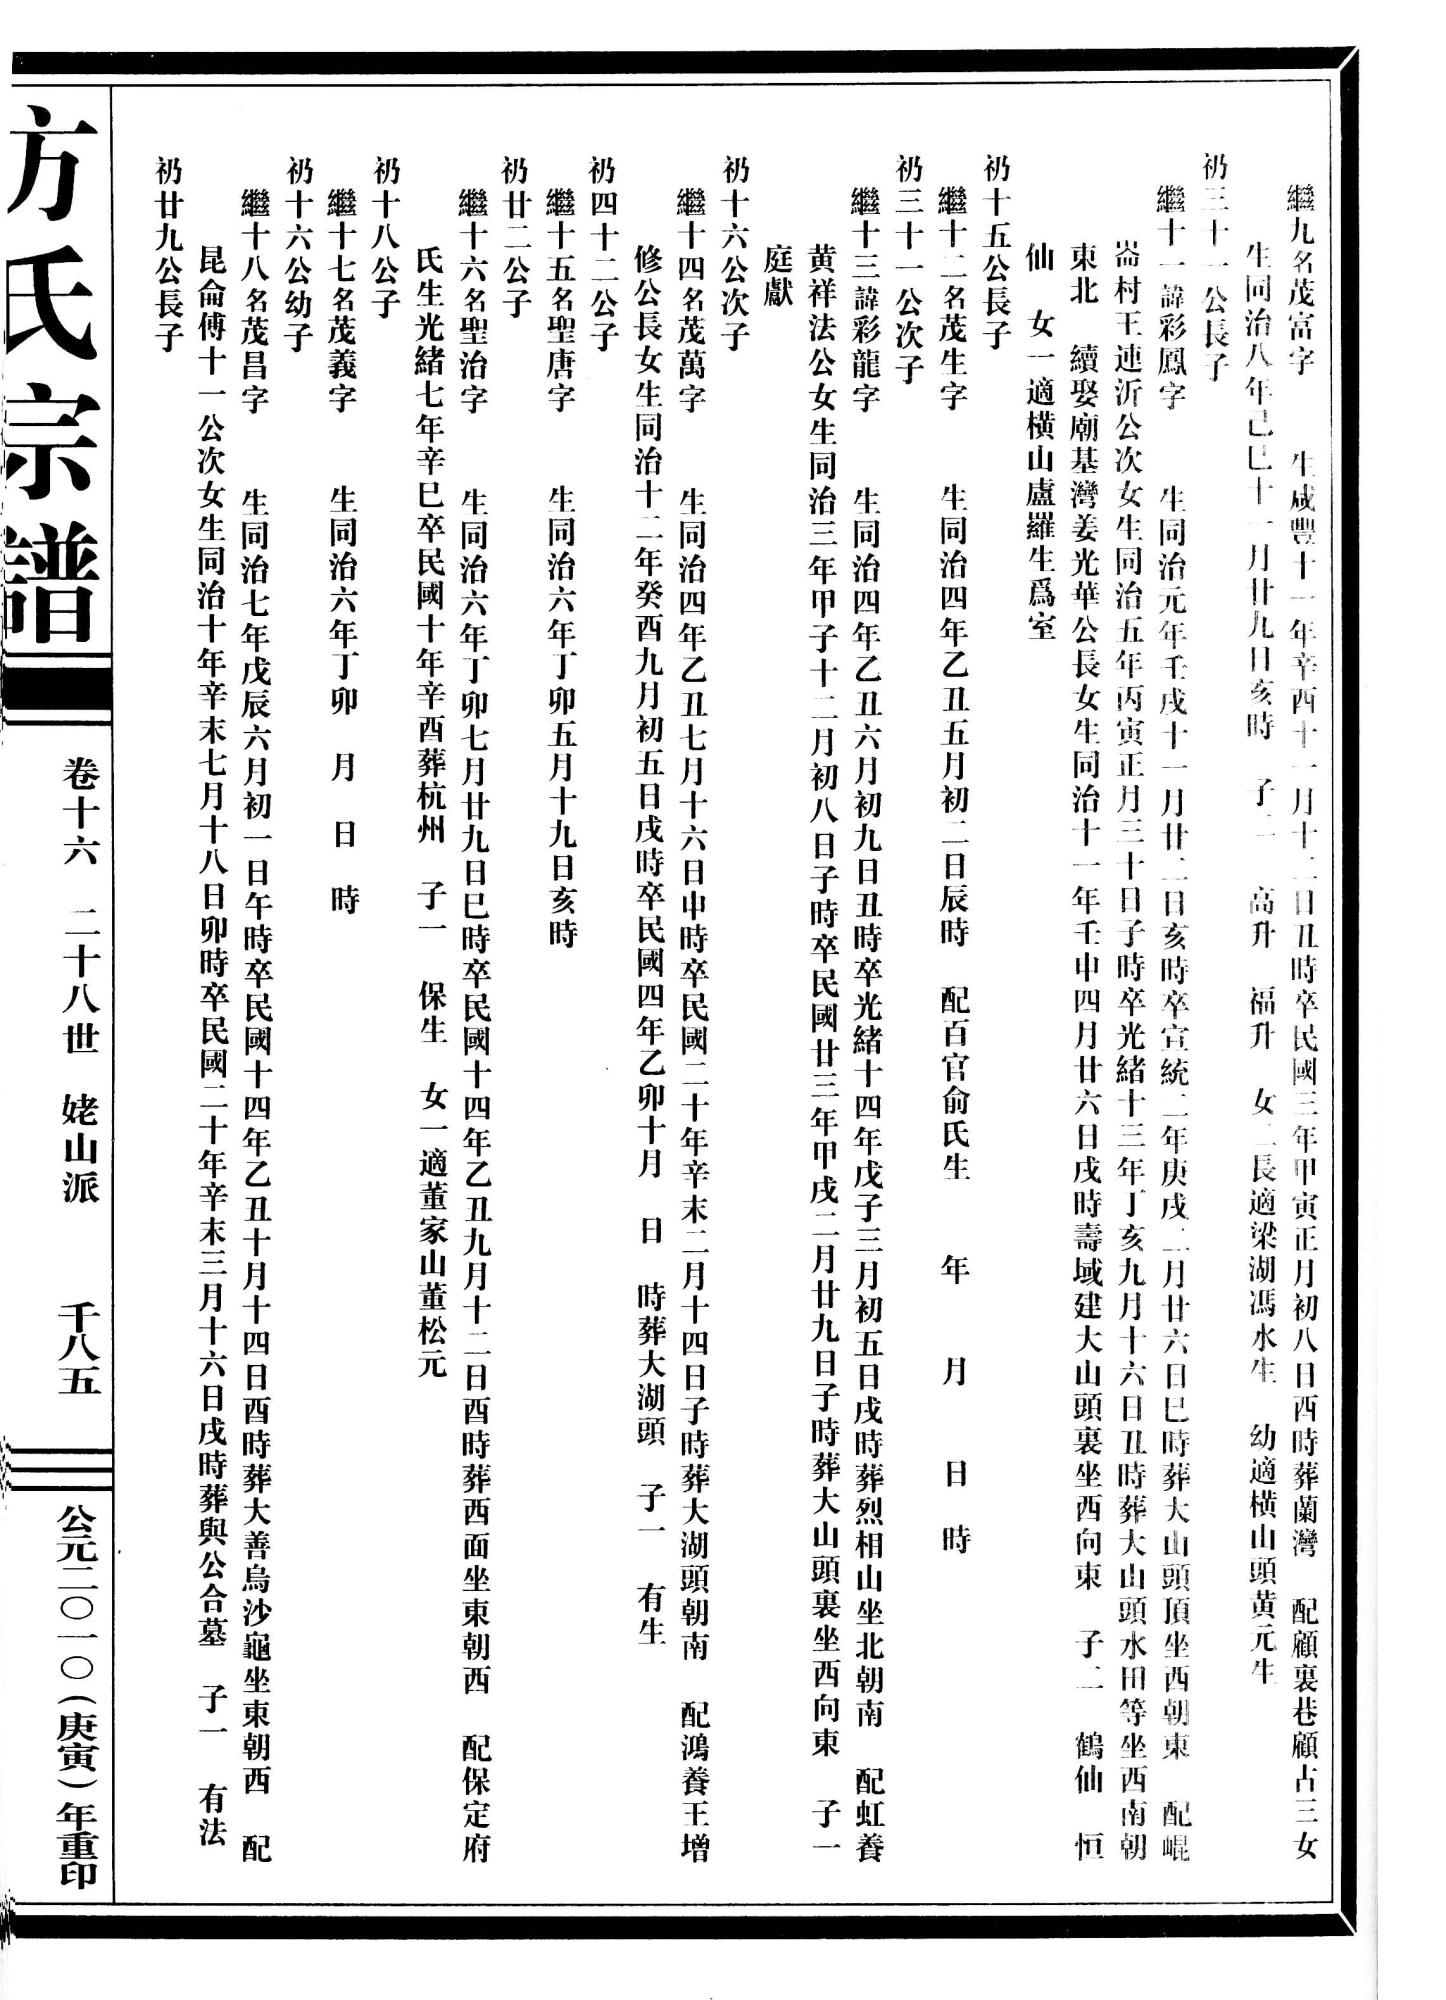 繼九名茂富字　　生咸豐十一年辛酉十一月十二日丑時卒民國三年甲寅正月初八日酉時葬蘭灣　配顧裏巷顧占三女
生同治八年己巳十一月廿九日亥時　子二　高升　福升　女二長適梁湖馮水生　幼適橫山頭黃元生
礽三十一公長子
繼十一諱彩鳳字　　生同治元年壬戌十一月廿二日亥時卒宣統二年庚戌二月廿六日巳時葬大山頭頂坐西朝東　配崐
崙村王連沂公次女生同治五年丙寅正月三十日子時卒光緒十三年丁亥九月十六日丑時葬大山頭水田等坐西南朝
東北　續娶廟基灣姜光華公長女生同治十一年壬申四月廿六日戌時壽域建大山頭裏坐西向東　子二　鶴仙　恒
仙　女一適橫山盧羅生爲室
礽十五公長子
繼十二名茂生字　　生同治四年乙丑五月初二日辰時　配百官俞氏生　年　月　日　時
礽三十一公次子
繼十三諱彩龍字　　生同治四年乙丑六月初九日丑時卒光緒十四年戊子三月初五日戌時葬烈相山坐北朝南　配虹養
黃祥法公女生同治三年甲子十二月初八日子時卒民國廿三年甲戌二月廿九日子時葬大山頭裏坐西向東　子一
庭獻
礽十六公次子
繼十四名茂萬字　　生同治四年乙丑七月十六日申時卒民國二十年辛未二月十四日子時葬大湖頭朝南　配鴻養王增
修公長女生同治十二年癸酉九月初五日戌時卒民國四年乙卯十月　日　時葬大湖頭　子一　有生
礽四十二公子
繼十五名聖唐字　　生同治六年丁卯五月十九日亥時
礽廿二公子
繼十六名聖治字　　生同治六年丁卯七月廿九日巳時卒民國十四年乙丑九月十二日酉時葬西面坐東朝西　配保定府
氏生光緒七年辛巳卒民國十年辛酉葬杭州　子一　保生　女一適董家山董松元
礽十八公子
繼十七名茂義字　　生同治六年丁卯　月　日　時
礽十六公幼子
繼十八名茂昌字　　生同治七年戊辰六月初一日午時卒民國十四年乙丑十月十四日酉時葬大善烏沙龜坐東朝西　配
昆侖傅十一公次女生同治十年辛未七月十八日卯時卒民國二十年辛未三月十六日戌時葬與公合墓　子一　有法
礽廿九公長子
方氏宗譜
卷十六　二十八世　姥山派　千八五
公元二〇一〇（庚寅）年重印